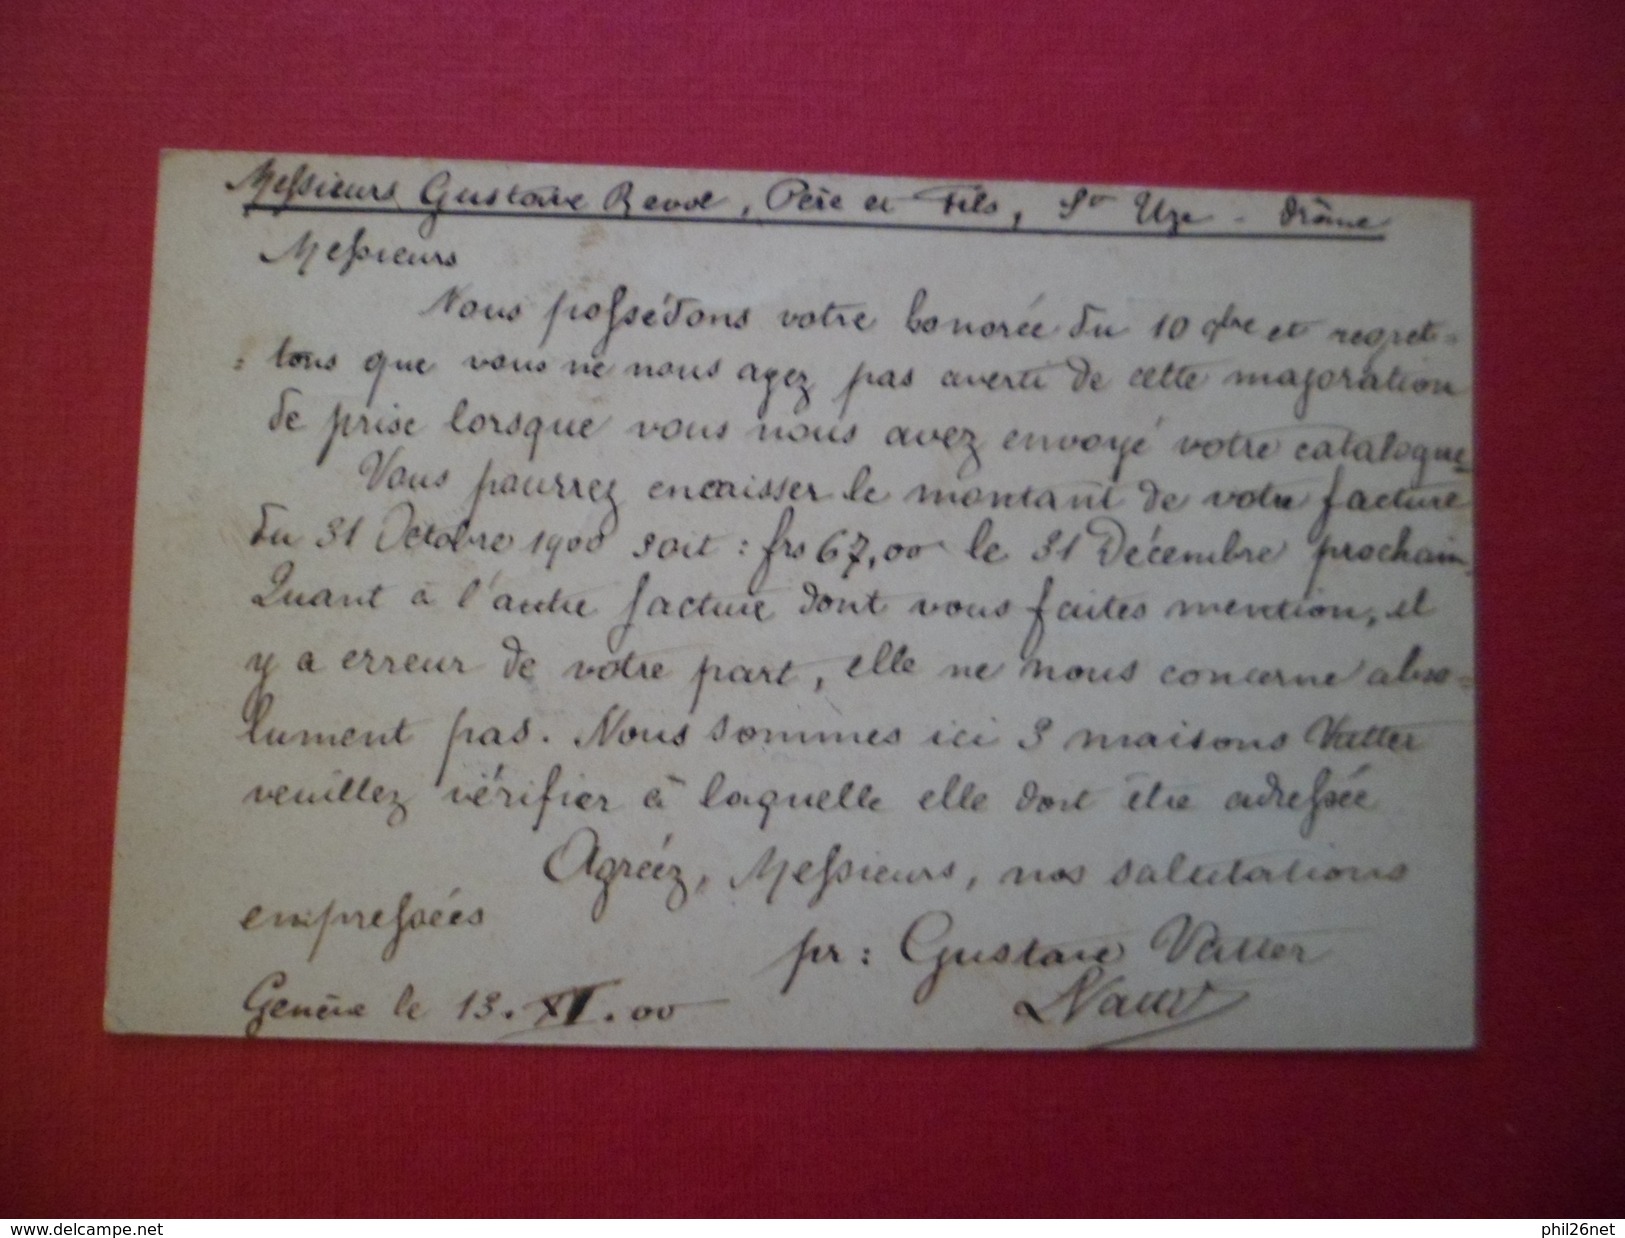 Messieurs Gustave Revol, Père et Fils, St Uze - Drôme
Messieurs
Nous possédons votre honorée du 10 et regret-
-tons que vous ne nous ayez pas averti de cette majoration
de prise lorsque vous nous avez envoyé votre catalogue
Vous pourrez encaisser le montant de votre facture
du 31 Octobre 1900 soit : frs 67,00 le 31 Décembre prochain.
Quant à l'autre facture dont vous faites mention, il
y a erreur de votre part, elle ne nous concerne abso-
lument pas. Nous sommes ici 3 maisons Vatter
veuillez vérifier à laquelle elle doit être adressée
Agréez, Messieurs, nos salutations
empressées
pr : Gustave Vatter
Genève le 13.XI.00
delcampe.net
phil26net